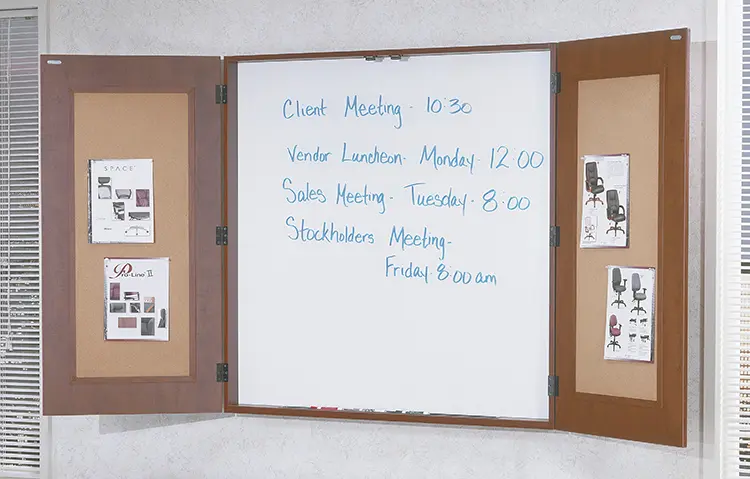 Client Meeting - 10:30
Vendor Luncheon - Monday - 12:00
Sales Meeting - Tuesday - 8:00
Stockholders Meeting -
Friday - 8:00 am
SPACE
Pro-Line II